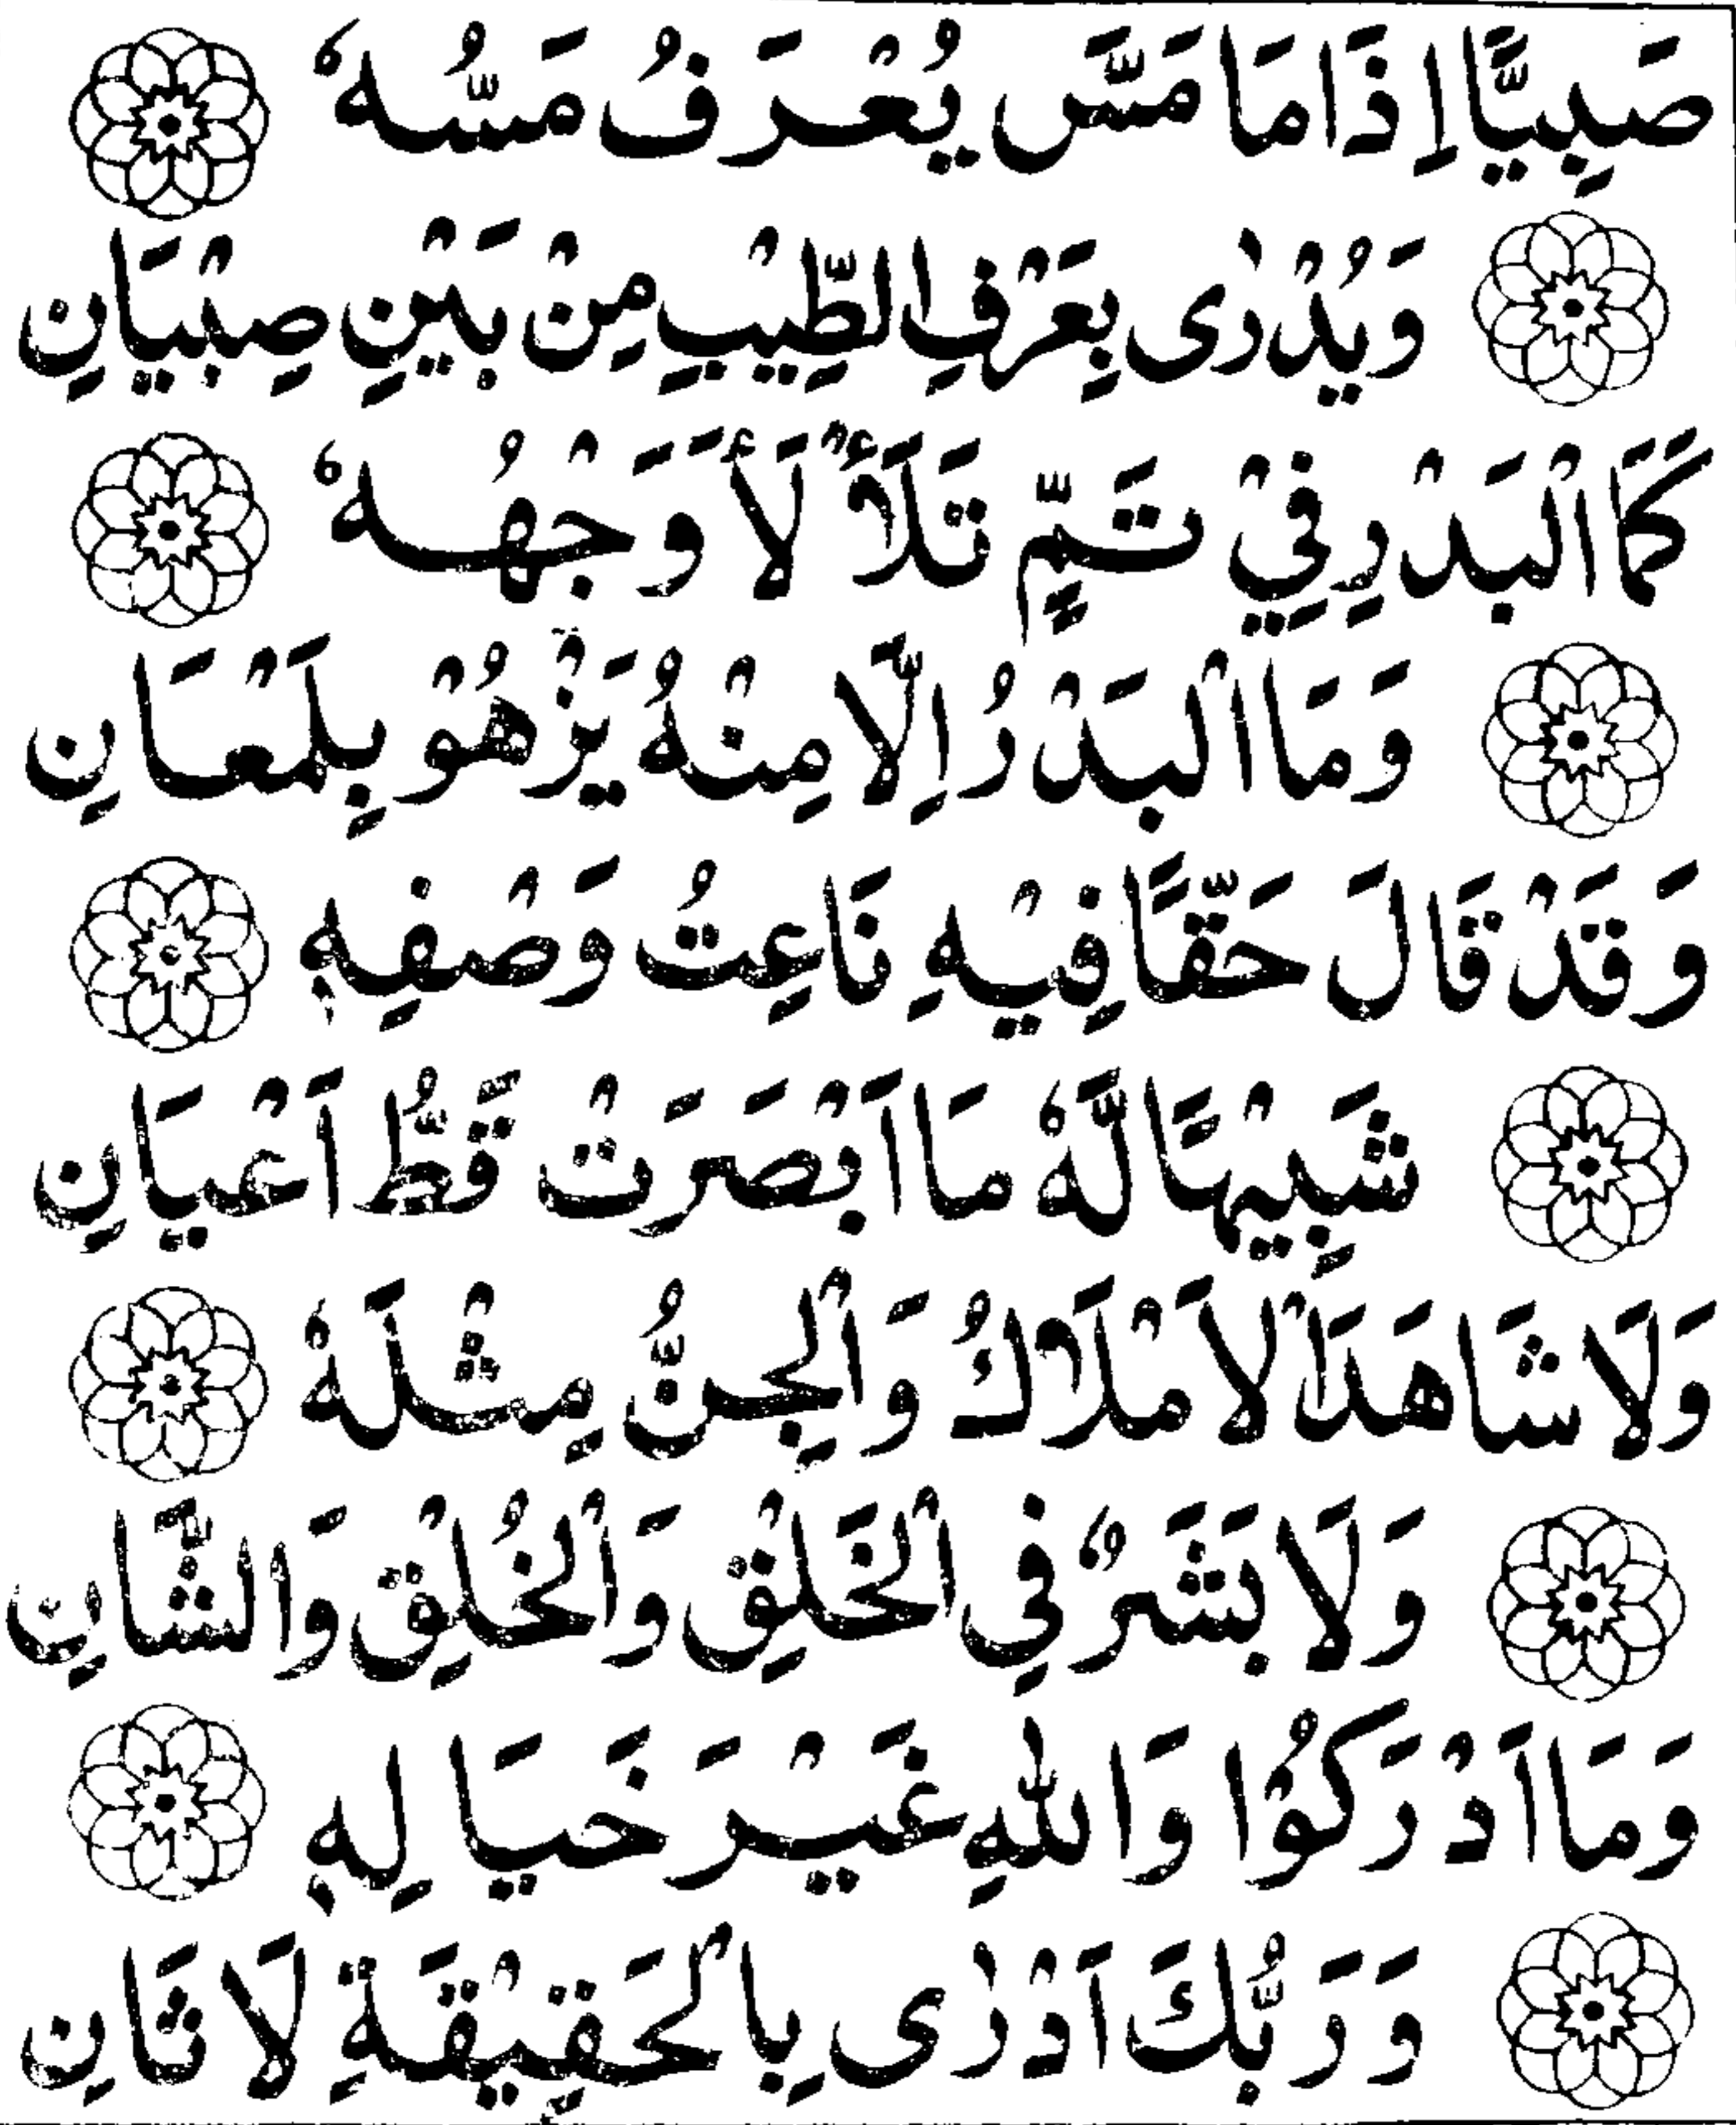 صَبِيًّا اِذَا مَا مَسَّ يُعْرَفُ مَسُّهٗ
وَيُدْرٰى بِعَرْفِ الطِّيْبِ مِنْ بَيْنِ صِبْيَانِ
كَمَا الْبَدْرِ فِيْ تَمٍّ تَلَأْلَأَ وَجْهُهٗ
وَمَا الْبَدْرُ اِلَّا مِنْهُ يَزْهُوْ بِلَمْعَانِ
وَقَدْ قَالَ حَقًّا فِيْهِ نَاعِتُ وَصْفِهٖ
شَبِيْهًا لَّهٗ مَا اَبْصَرَتْ قَطُّ اَعْيَانِ
وَلَا شَاهَدَ الْاَمْلَاكُ وَالْجِنُّ مِثْلَهٗ
وَلَا بَشَرٌ فِي الْخَلْقِ وَالْخُلْقِ وَالشَّانِ
وَمَا اَدْرَكُوْا وَاللهِ غَيْرَ خَيَالِهٖ
وَرَبُّكَ اَدْرٰى بِالْحَقِيْقَةِ لَا ثَانِ